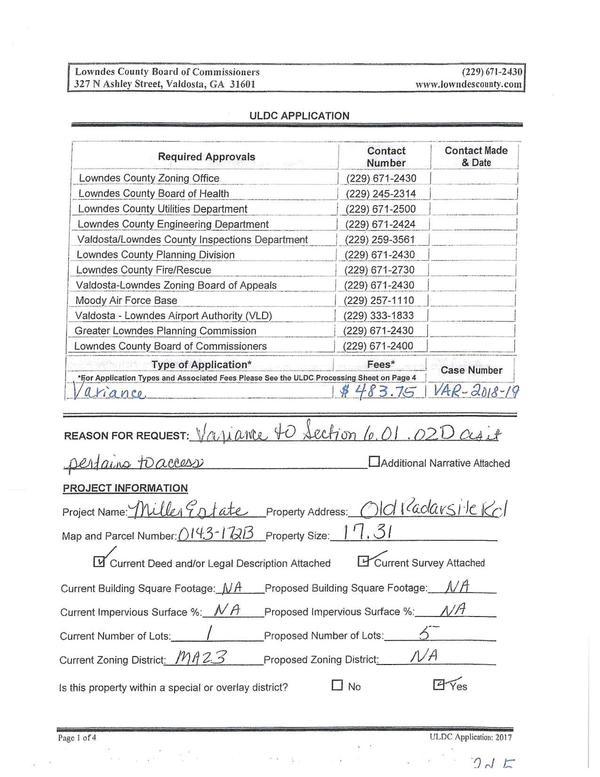 Lowndes County Board of Commissioners (229) 671-2430
327 N Ashley Street, Valdosta, GA 31601 www.lowndescounty.com
ULDC APPLICATION
Required Approvals Contact Number Contact Made & Date
Lowndes County Zoning Office (229) 671-2430
Lowndes County Board of Health (229) 245-2314
Lowndes County Utilities Department (229) 671-2500
Lowndes County Engineering Department (229) 671-2424
Valdosta/Lowndes County Inspections Department (229) 259-3561
Lowndes County Planning Division (229) 671-2430
Lowndes County Fire/Rescue (229) 671-2730
Valdosta-Lowndes Zoning Board of Appeals (229) 671-2430
Moody Air Force Base (229) 257-1110
Valdosta - Lowndes Airport Authority (VLD) (229) 333-1833
Greater Lowndes Planning Commission (229) 671-2430
Lowndes County Board of Commissioners (229) 671-2400
Type of Application* Fees* Case Number
*For Application Types and Associated Fees Please See the ULDC Processing Sheet on Page 4
Variance $483.75 VAR-2018-19
REASON FOR REQUEST: Variance to Section 6.01.02D as it
pertains to access Additional Narrative Attached
PROJECT INFORMATION
Project Name: Miller Estate Property Address: Old Radarsite Rd
Map and Parcel Number: 0143-172B Property Size: 17.31
Current Deed and/or Legal Description Attached Current Survey Attached
Current Building Square Footage: NA Proposed Building Square Footage: NA
Current Impervious Surface %: NA Proposed Impervious Surface %: NA
Current Number of Lots: 1 Proposed Number of Lots: 5
Current Zoning District: MA23 Proposed Zoning District: NA
Is this property within a special or overlay district? No Yes
Page 1 of 4 ULDC Application: 2017